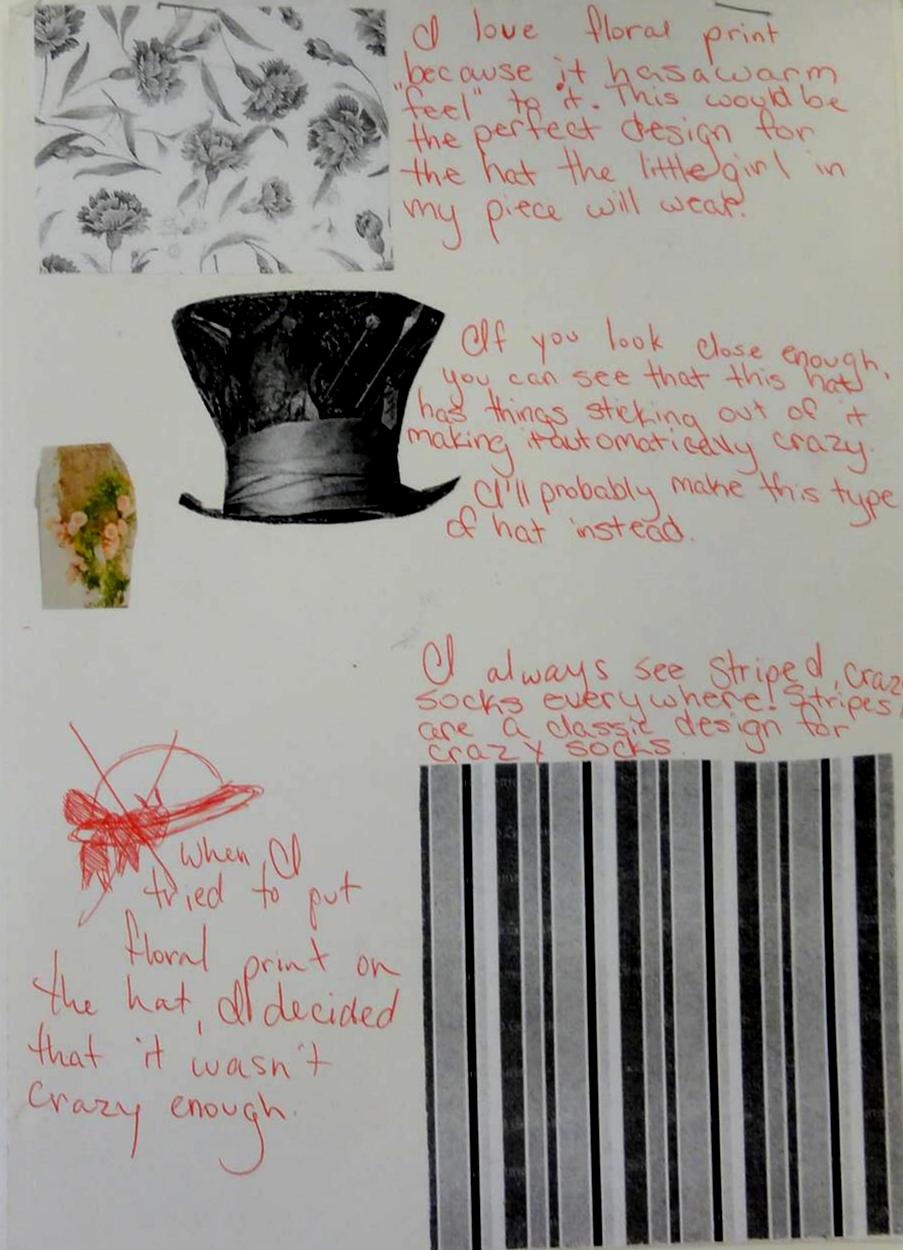 I love floral print
because it has a warm
"feel" to it. This would be
the perfect design for
the hat the little girl in
my piece will wear.
If you look close enough,
you can see that this hat
has things sticking out of it
making it automatically crazy.
I'll probably make this type
of hat instead.
I always see striped, crazy
socks everywhere! Stripes
are a classic design for
crazy socks.
When I
tried to put
floral print on
the hat, I decided
that it wasn't
crazy enough.